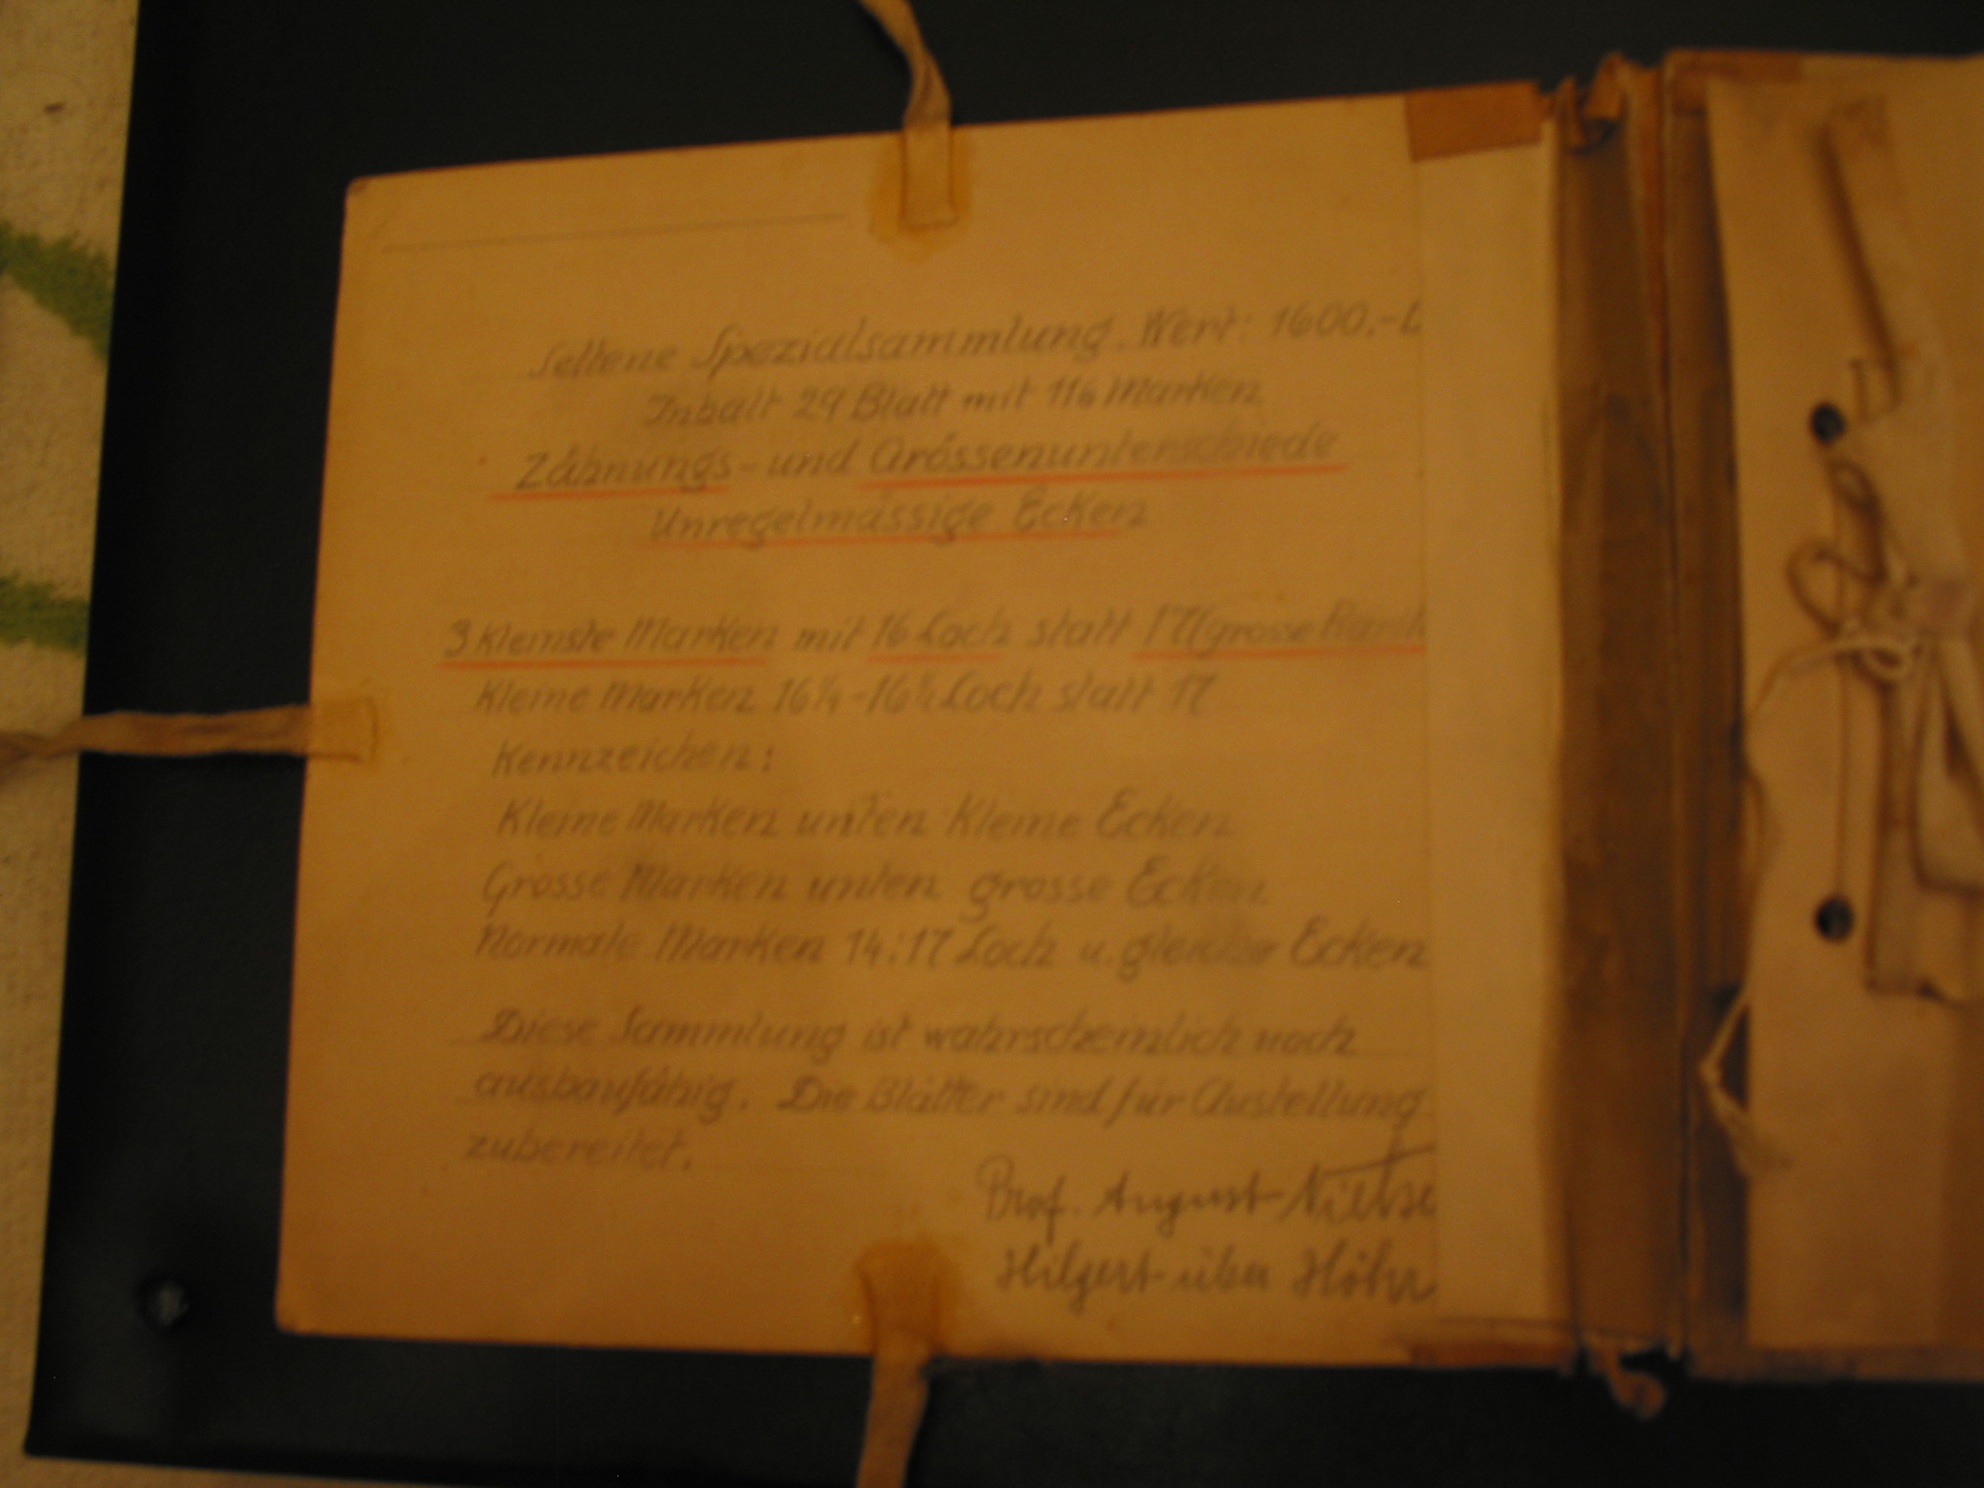 Seltene Spezialsammlung. Wert: 1600.-
Inhalt 29 Blatt mit 116 Marken
Zähnungs- und Grössenunterschiede
Unregelmässige Ecken
3 kleinste Marken mit 16 Loch statt 17 (grosse
Kleine Marken 16¼ - 16½ Loch statt 17
Kennzeichen:
Kleine Marken unten kleine Ecken
Grosse Marken unten grosse Ecken
Normale Marken 14:17 Loch u. gleiche Ecken
Diese Sammlung ist wahrscheinlich noch
ausbaufähig. Die Blätter sind für Austellung
zubereitet.
Prof. August
Hilgert über Höhr